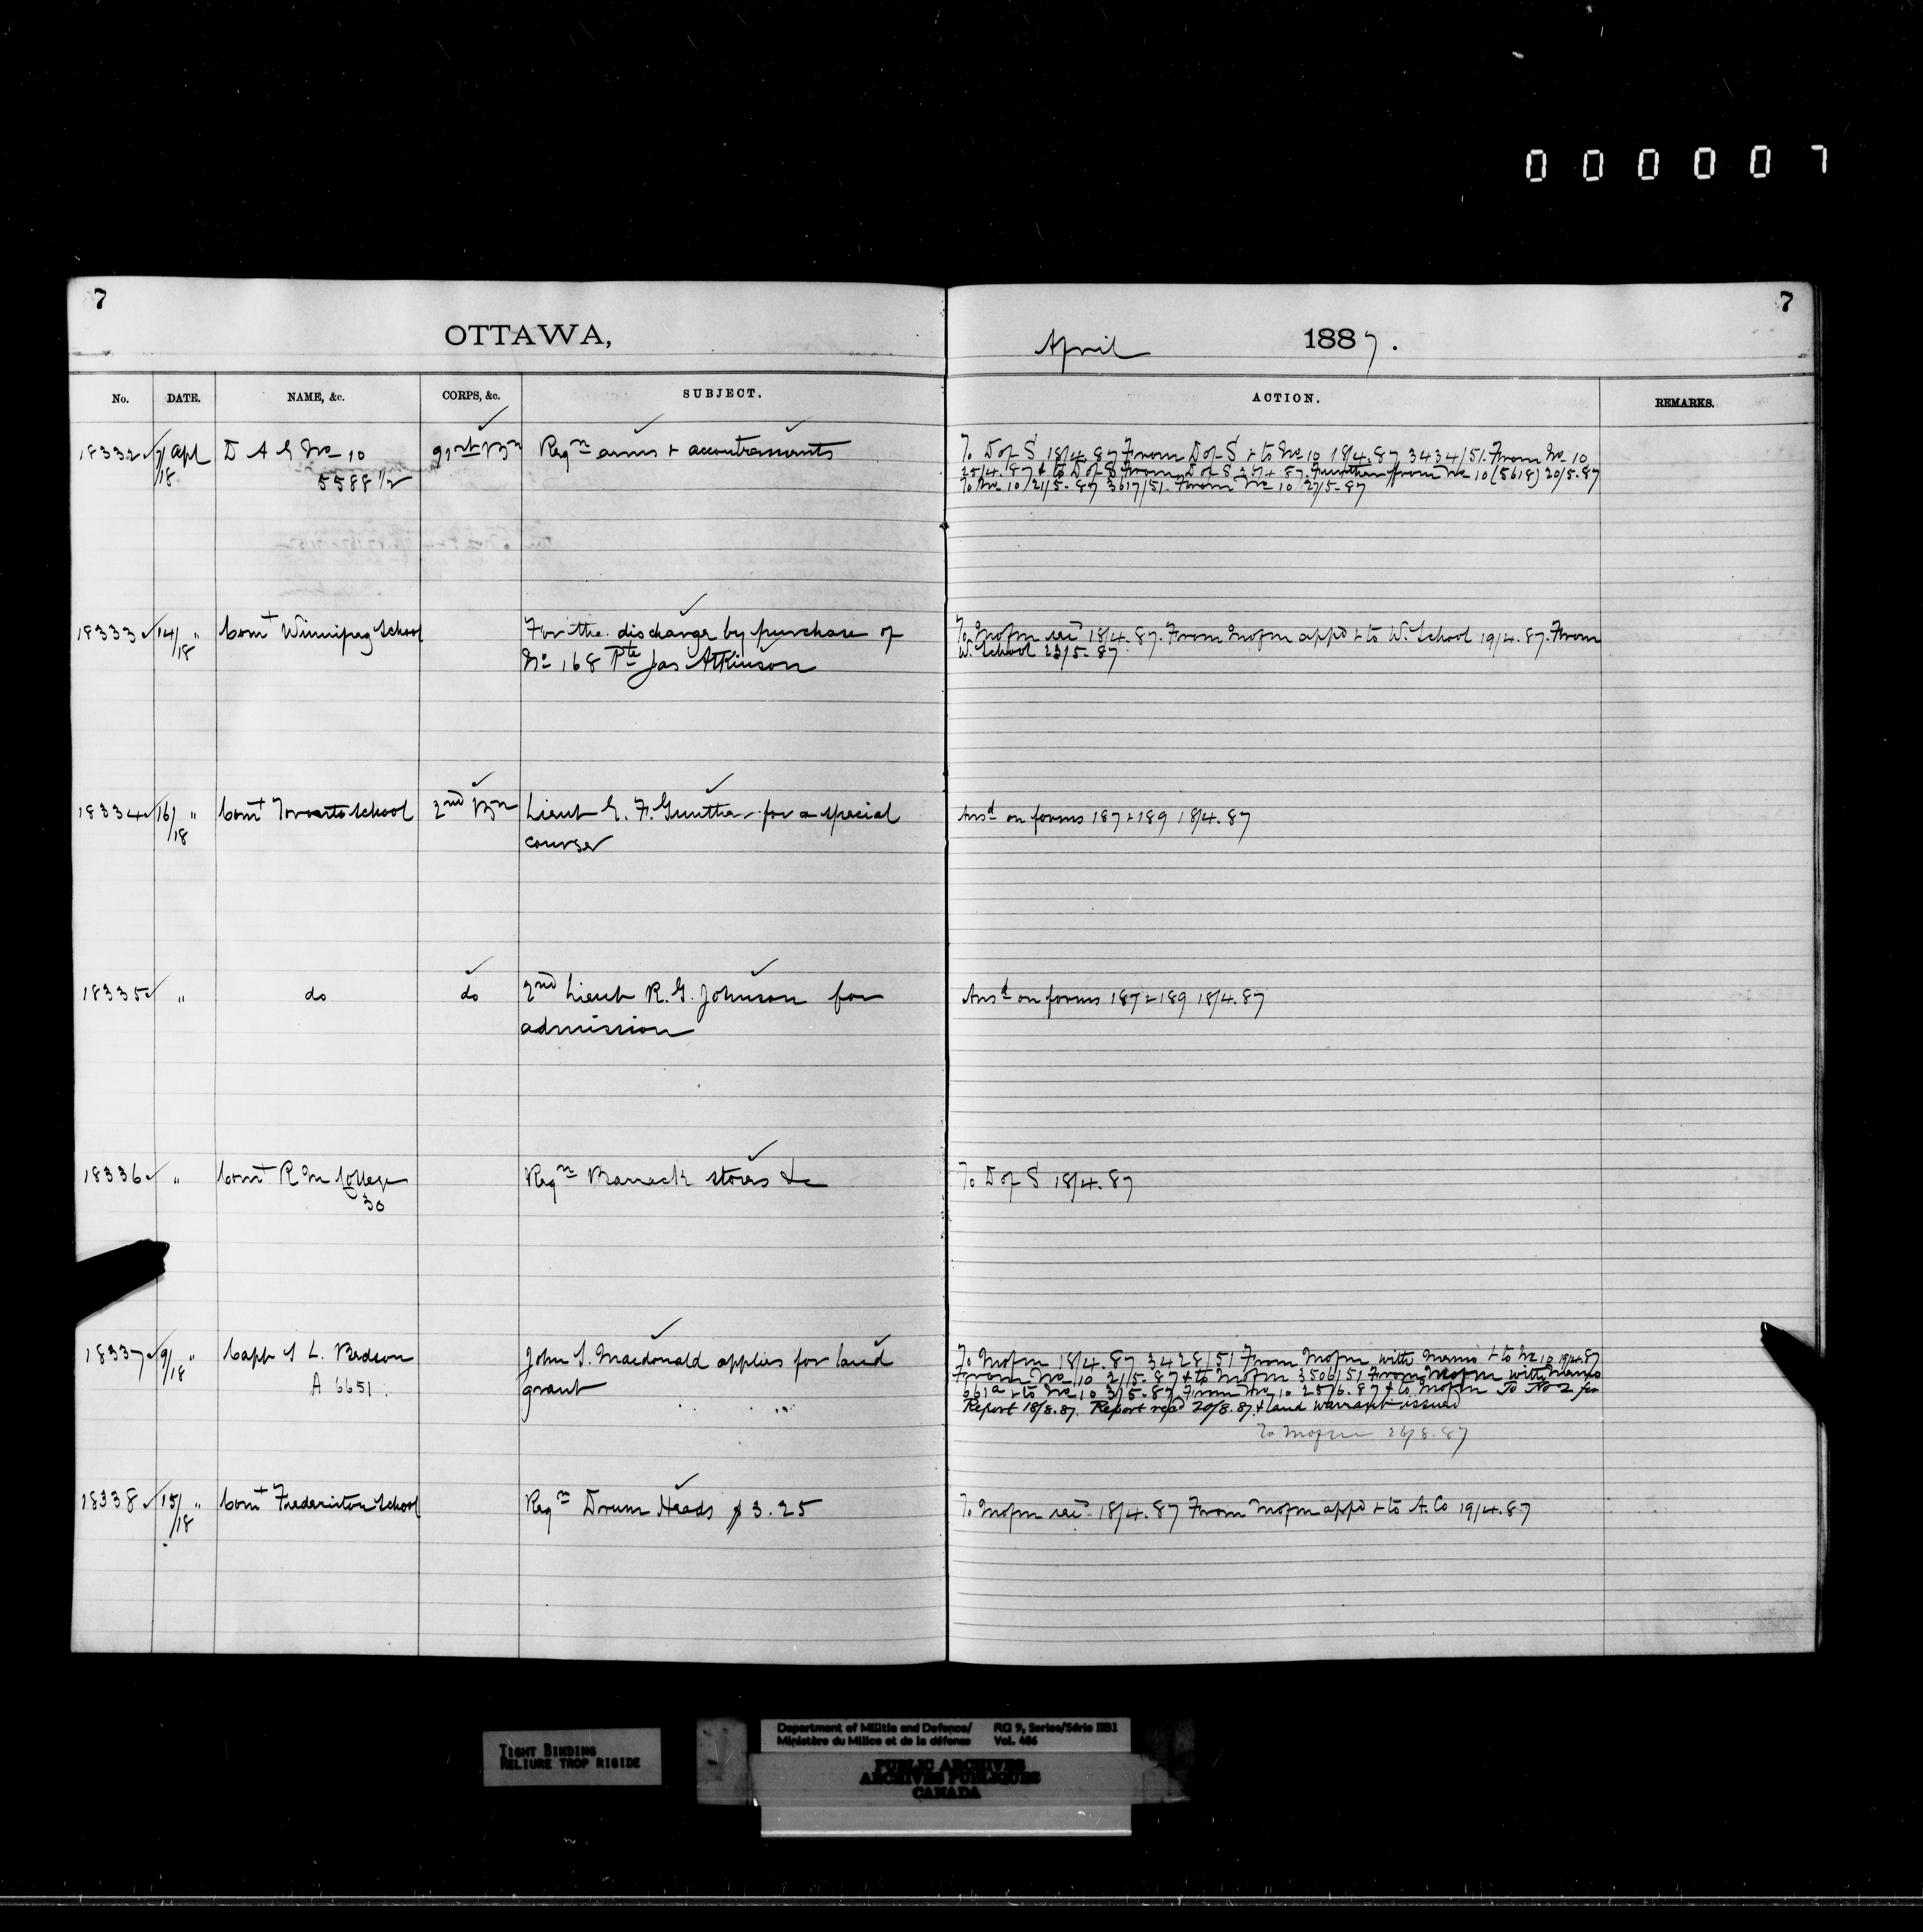 0 0 0 0 0 7
7
7
OTTAWA,
April 1887.
No. DATE. NAME, &c. CORPS, &c. SUBJECT. ACTION. REMARKS.
18332 7/18 Apl D A G No 10 91st Bn Reqn arms + accoutrements
5588 1/2
To D of S 18/4.87 From D of S + to No 10 18/4.87 3434/51. From No 10
25/4.87 + to D of S From D of S 87. Further from No 10 (5618) 20/5.87
To No 10 21/5.87 3617/51. From No 10 27/5.87
18333 14/18 " Comt Winnipeg School For the discharge by purchase of
No 168 Pte Jas Atkinson
To Mofm recd 18/4.87. From Mofm appd + to W. School 19/4.87. From
W. School 23/5.87
18334 16/18 " Comt Toronto School 2nd Bn Lieut E. F. Gunther for a special
course
Ansd on forms 187 + 189 18/4.87
18335 " do do 2nd Lieut R. G. Johnson for
admission
Ansd on forms 187 + 189 18/4.87
18336 " Comt R M College Reqn Barrack stores &c
30
To D of S 18/4.87
18337 9/18 " Capt S L. Bedson John S. Macdonald applies for land
A 6651. grant
To Mofm 18/4.87 3428/51 From Mofm with Memo + to No 10 19/4.87
From No 10 2/5.87 + to Mofm 3506/51 From Mofm with Memo
661a + to No 10 3/5.87. From No 10 25/6.87 + to Mofm To No 2 for
Report 18/8.87. Report recd 20/8.87. + land warrant issued
To Mofm 26/8.87
18338 15/18 " Comt Fredericton School Reqn Drum Heads $3.25
To Mofm recd 18/4.87 From Mofm appd + to A. Co 19/4.87
TIGHT BINDING
RELIURE TROP RIGIDE
Department of Militia and Defence/ RG 9, Series/Série IIB1
Ministère du Milice et de la défense Vol. 486
PUBLIC ARCHIVES
ARCHIVES PUBLIQUES
CANADA